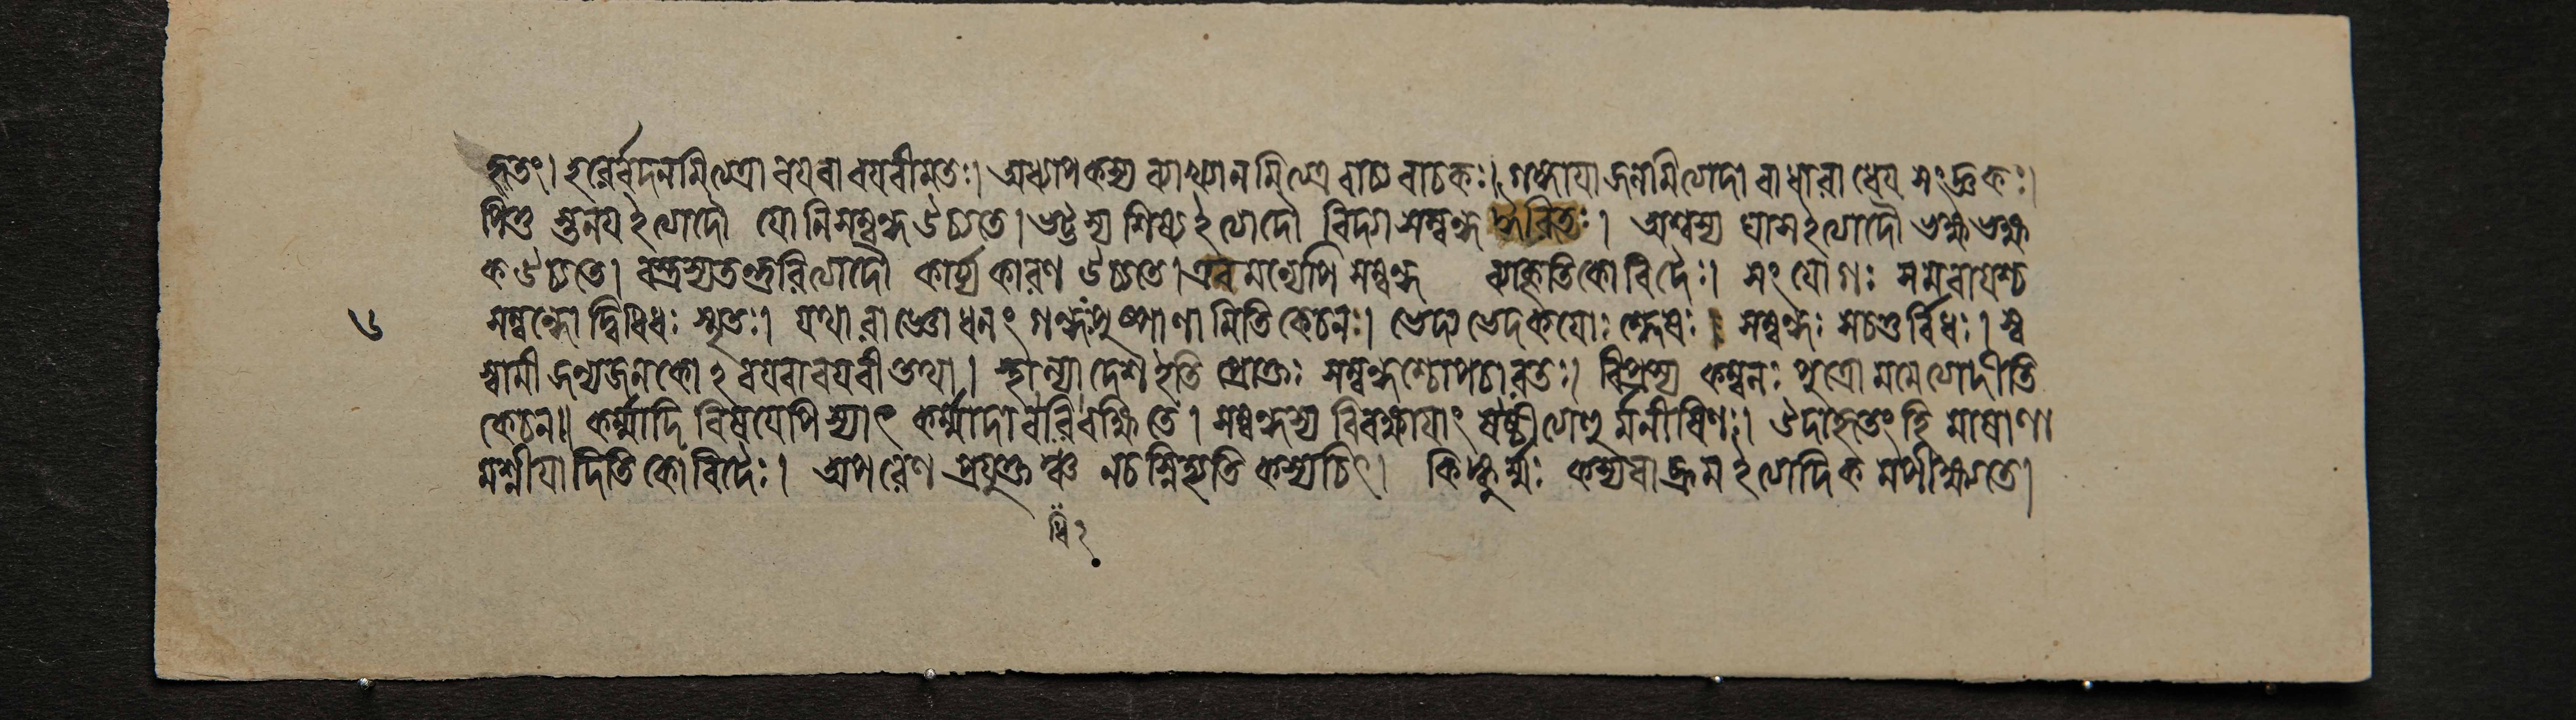 হৃতং। হরের্বদনমিত্যত্রাবয়বাবয়বীমতঃ। অধ্যাপকস্য ব্যাখ্যানমিত্যত্র বাচ্যবাচকঃ। গঙ্গায়া জলমিত্যাদাবাধারাধেয়সংজ্ঞকঃ।
পিতুস্তনয় ইত্যাদৌ যোনিসম্বন্ধ উচ্যতে। শিষ্য ইত্যাদৌ বিদ্যাসম্বন্ধ ঈরিতঃ। অশ্বস্য ঘাস ইত্যাদৌ ভক্ষ্যভক্ষ
ক উচ্যতে। বস্ত্রস্য তন্তুরিত্যাদৌ কার্য্যকারণ উচ্যতে। এবমন্যেপি সম্বন্ধ ব্যাকৃতিকোবিদৈঃ। সংযোগঃ সমবায়শ্চ
সম্বন্ধো দ্বিবিধঃ স্মৃতঃ। যথা রাজ্ঞো ধনং গন্ধং পুষ্পাণামিতি কেচনঃ। ভেদ্যভেদকয়োঃ শ্লেষঃ। সম্বন্ধঃ স চতুর্বিধঃ। স্ব
স্বামী জন্যজনকো ঽবয়বাবয়বী তথা। স্থান্যাদেশ ইতি প্রোক্তঃ সম্বন্ধশ্চোপচারতঃ। বিপ্রস্য কম্বলঃ পুত্রো মমেত্যাদীতি
কেচন॥ কর্ম্মাদিবিষয়েপি স্যাৎ কর্ম্মাদাববিবক্ষিতে। সম্বন্ধস্য বিবক্ষায়াং ষষ্ঠীত্যাহুর্মনীষিণঃ। উদাহৃতং হি মাষাণা
মশ্নীয়াদিতি কোবিদৈঃ। অপরেণ প্রযুক্তঞ্চ নচস্নিহ্যতি কস্যচিৎ। কিঙ্কুর্ম্মঃ কস্যবাব্রূম ইত্যাদিকমপীক্ষ্যতে।